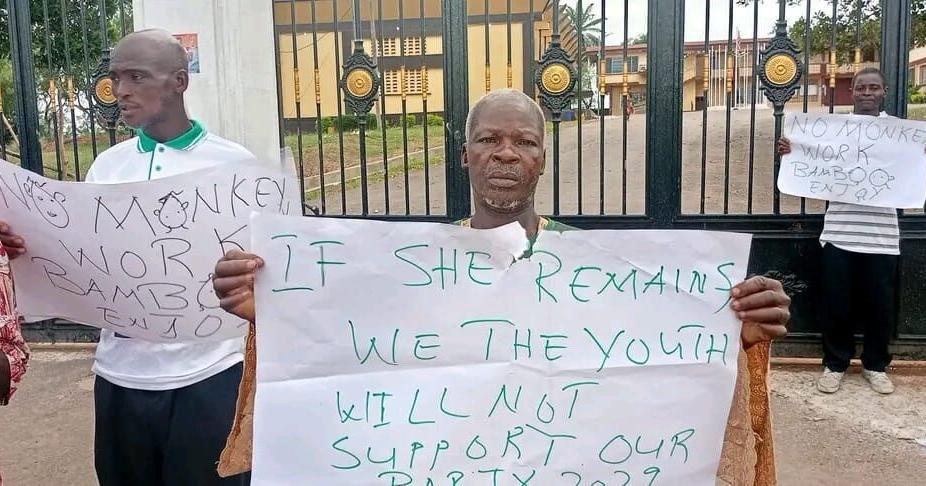 NO MONKEY
WORK
BAMBO
ENJO
IF SHE REMAINS
WE THE YOUTH
WILL NOT
SUPPORT OUR
PARTY 2029
NO MONKEY
WORK
BAMBOO
ENJOY